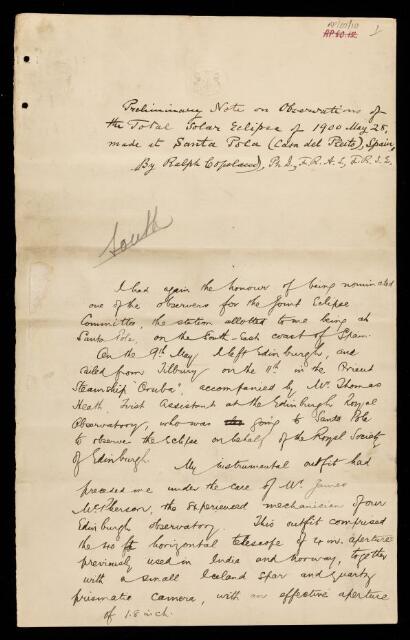 AP/00/10
AP.60.12.
1
Preliminary Note on Observations of
the Total Solar Eclipse of 1900 May 28,
made at Santa Pola (Casa del Pleito), Spain,
By Ralph Copeland, Ph.D., F.R.A.S., F.R.S.E.
South
I had again the honour of being nominated
one of the observers for the Joint Eclipse
Committee, the station allotted to me being at
Santa Pola, on the South-East coast of Spain.
On the 9th May I left Edinburgh, and
sailed from Tilbury on the 11th in the Orient
Steamship "Oruba", accompanied by Mr. Thomas
Heath, First Assistant at the Edinburgh Royal
Observatory, who was going to Santa Pola
to observe the Eclipse on behalf of the Royal Society
of Edinburgh. My instrumental outfit had
preceded me under the care of Mr James
McPherson, the experienced mechanician of our
Edinburgh observatory. This outfit comprised
the 40 ft horizontal telescope of 4 in. aperture
previously used in India and Norway, together
with a small Iceland spar and quartz
prismatic camera, with an effective aperture
of 1.8 inch.